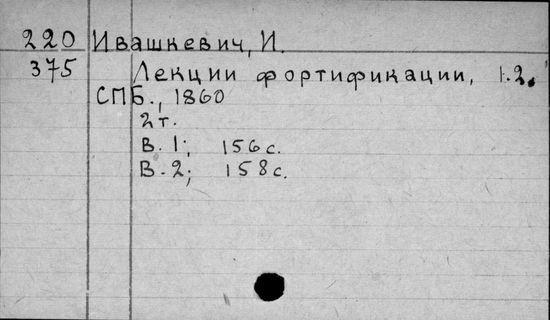 220 Ивашкевич, И.
375 Лекции фортификации, 1.2.
СПБ., 1860
2т.
В. 1; 156 с.
В. 2; 158 с.